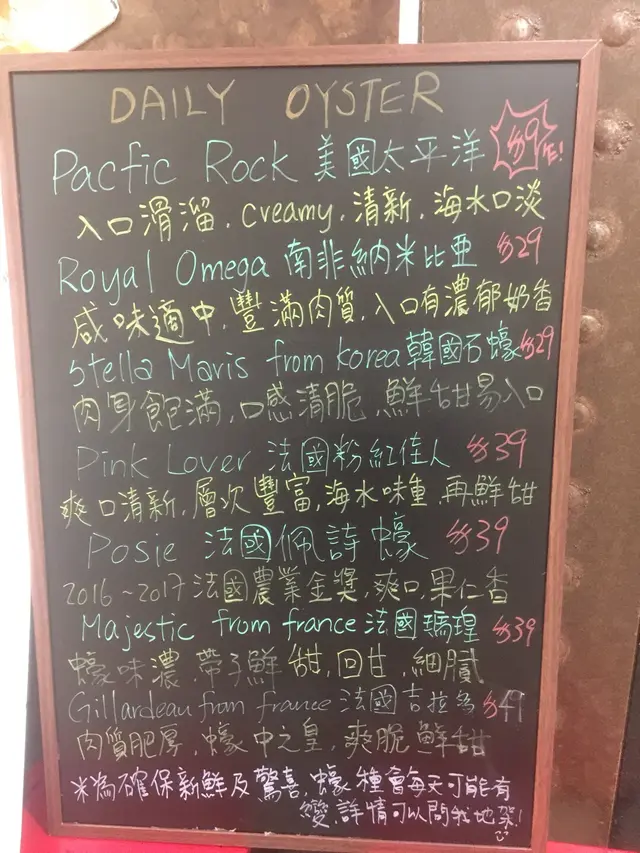 DAILY OYSTER
Pacfic Rock 美國太平洋 $9
入口滑溜, creamy, 清新, 海水口淡
Royal Omega 南非納米比亞 $29
咸味適中, 豐滿肉質, 入口有濃郁奶香
Stella Maris from korea 韓國石蠔 $29
肉身飽滿, 口感清脆, 鮮甜易入口
Pink Lover 法國粉紅佳人 $39
爽口清新, 層次豐富, 海水味重, 再鮮甜
Posie 法國佩詩蠔 $39
2016~2017法國農業金獎, 爽口, 果仁香
Majestic from france 法國瑪瑝 $39
蠔味濃, 帶子鮮甜, 回甘, 細膩
Gillardeau from france 法國吉拉多 $41
肉質肥厚, 蠔中之皇, 爽脆鮮甜
※為確保新鮮及驚喜, 蠔種會每天可能有
變, 詳情可以問我地架!